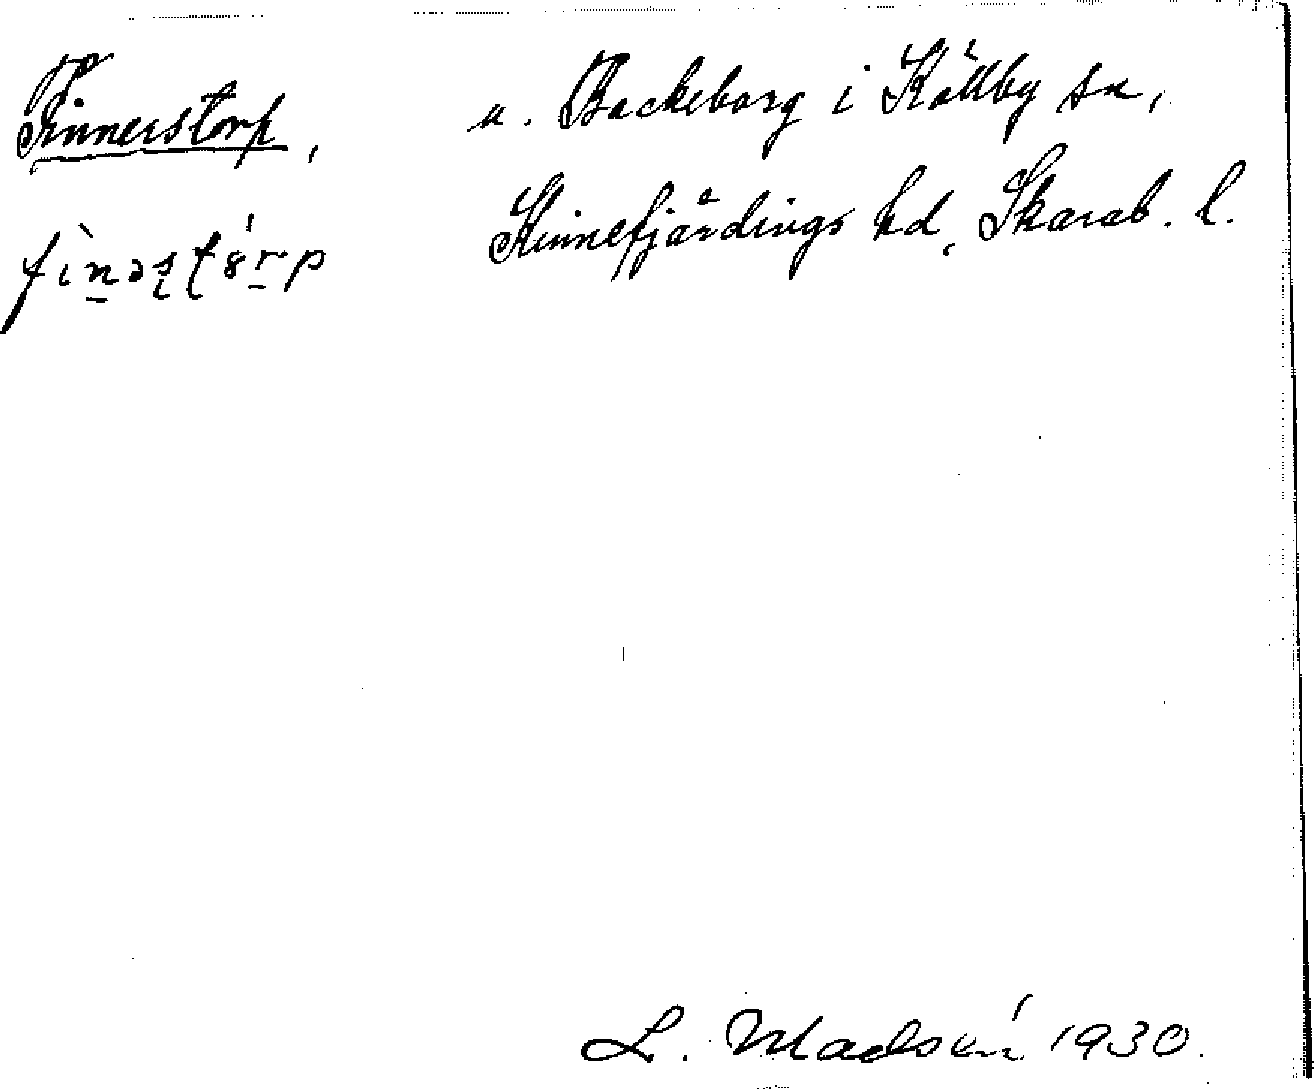 Finnerstorp, u. Backeborg i Källby sn,
fìnəʂʈór̲p Kinnefjärdings hd, Skarab. l.
L. Madsén 1930.